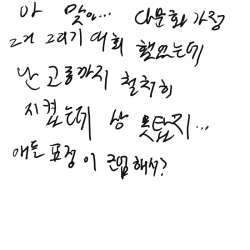 아 맞아... 다문화 가정
그거 그리기 대회 했었는데
난 고증까지 철저히
지켰는데 상 못탔지...
애들 표정이 근엄해서?